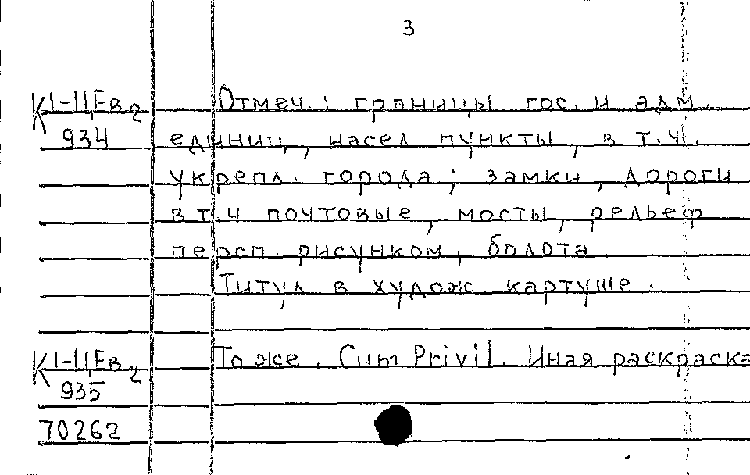 3
К 1-ЦЕв 2 Отмеч.: границы гос. и адм.
934 единиц, насел пункты, в т.ч.
укрепл. города; замки, дороги
в т.ч почтовые, мосты, рельеф
персп. рисунком, болота
Титул в худож картуше.
К 1-ЦЕв 2 То же. Cum Privil. Иная раскраска
935
70262